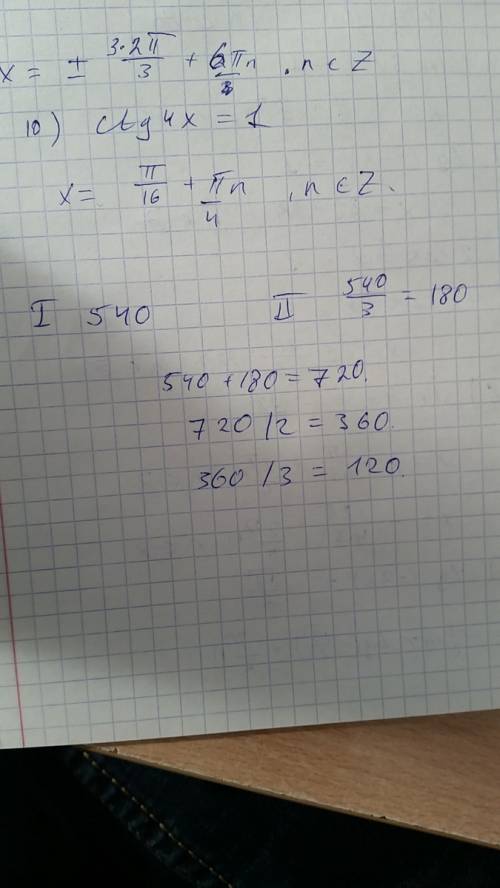 x = ± 3·2π/3 + 6πn , n ∈ Z
10) ctg 4x = 1
x = π/16 + π/4 n , n ∈ Z.
I 540 II 540/3 = 180
540 + 180 = 720.
720 / 2 = 360.
360 / 3 = 120.